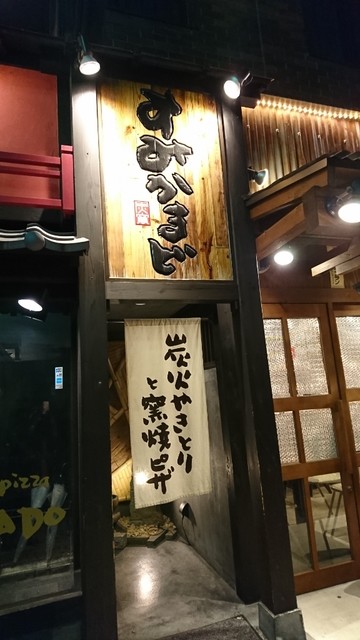 すみかまど
炭火やきとり
と窯焼ピザ
pizza
ADO